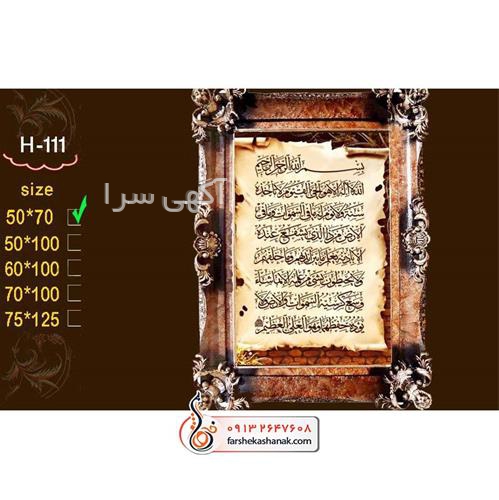 H-111
آگهی سرا
size
50*70
50*100
60*100
70*100
75*125
بِسْمِ اللهِ الرَّحْمنِ الرَّحِیمِ
اللهُ لا اله الا هو الحی القیوم لا تاخذه
سنة ولا نوم له ما فی السموات وما فی
الارض من ذا الذی یشفع عنده
الا باذنه یعلم ما بین ایدیهم وما خلفهم
ولا یحیطون بشیء من علمه الا بما شاء
وسع کرسیه السموات والارض ولا
یوده حفظهما وهو العلی العظیم
۰۹۱۳ ۲۶۴۷۶۰۸
farshekashanak.com